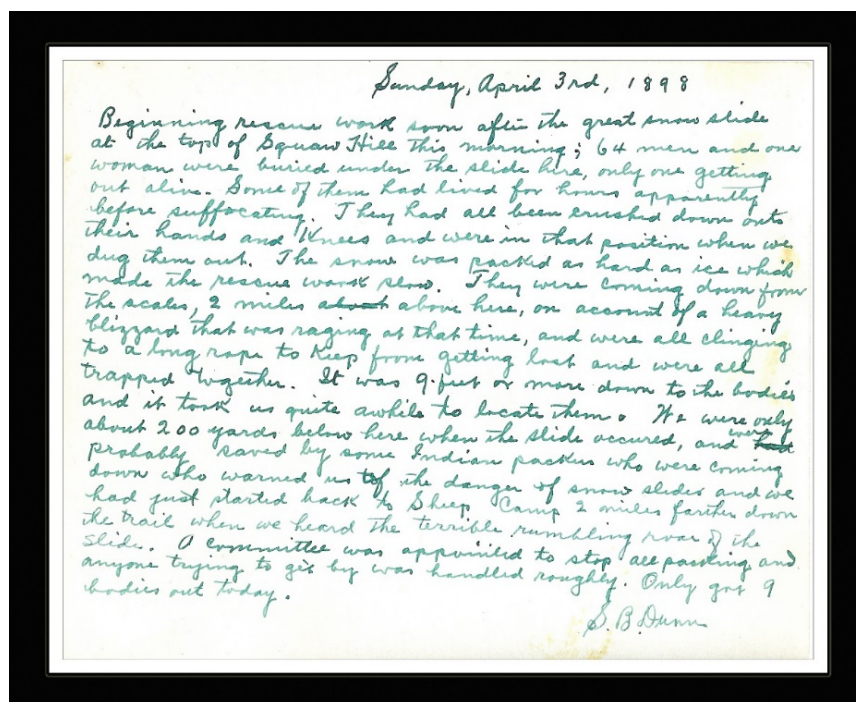 Sunday, April 3rd, 1898
Beginning rescue work soon after the great snow slide
at the top of Squaw Hill this morning; 64 men and one
woman were buried under the slide here, only one getting
out alive. Some of them had lived for hours apparently
before suffocating. They had all been crushed down onto
their hands and Knees and were in that position when we
dug them out. The snow was packed as hard as ice which
made the rescue work slow. They were coming down from
the scales, 2 miles about above here, on account of a heavy
blizzard that was raging at that time, and were all clinging
to a long rope to Keep from getting lost and were all
trapped together. It was 9 feet or more down to the bodies
and it took us quite awhile to locate them. We were only
about 200 yards below here when the slide occured, and were had
probably saved by some Indian packers who were coming
down who warned us of the danger of snow slides and we
had just started back to Sheep Camp 2 miles farther down
the trail when we heard the terrible rumbling roar of the
slide. A committee was appointed to stop all packing and
anyone trying to get by was handled roughly. Only got 9
bodies out today.
S. B. Dunn